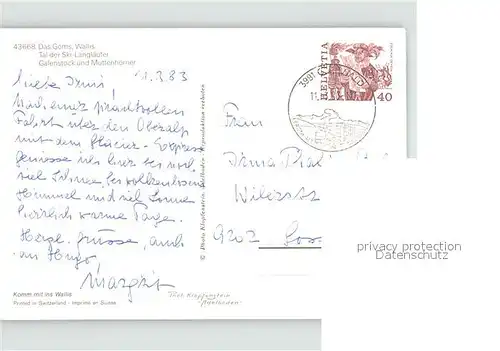 43668 Das Goms, Wallis
Tal der Ski-Langläufer
Galenstock und Muttenhörner
11.3.83
Liebe Irma!
Nach einer prachtvollen
Fahrt über den Oberalp
mit dem Glacier-Express
geniesse ich hier bei noch
viel Schnee bei wolkenlosem
Himmel und viel Sonne
herrlich warme Tage.
Herzl. Grüsse, auch
an Hugo,
Margrit
Komm mit ins Wallis
Printed in Switzerland - Imprimé en Suisse
© Photo Klopfenstein, Adelboden Reproduktion verboten
Phot. Klopfenstein
Adelboden
3981
HELVETIA
40
Frau
Irma
9202 Gos
privacy protection
Datenschutz